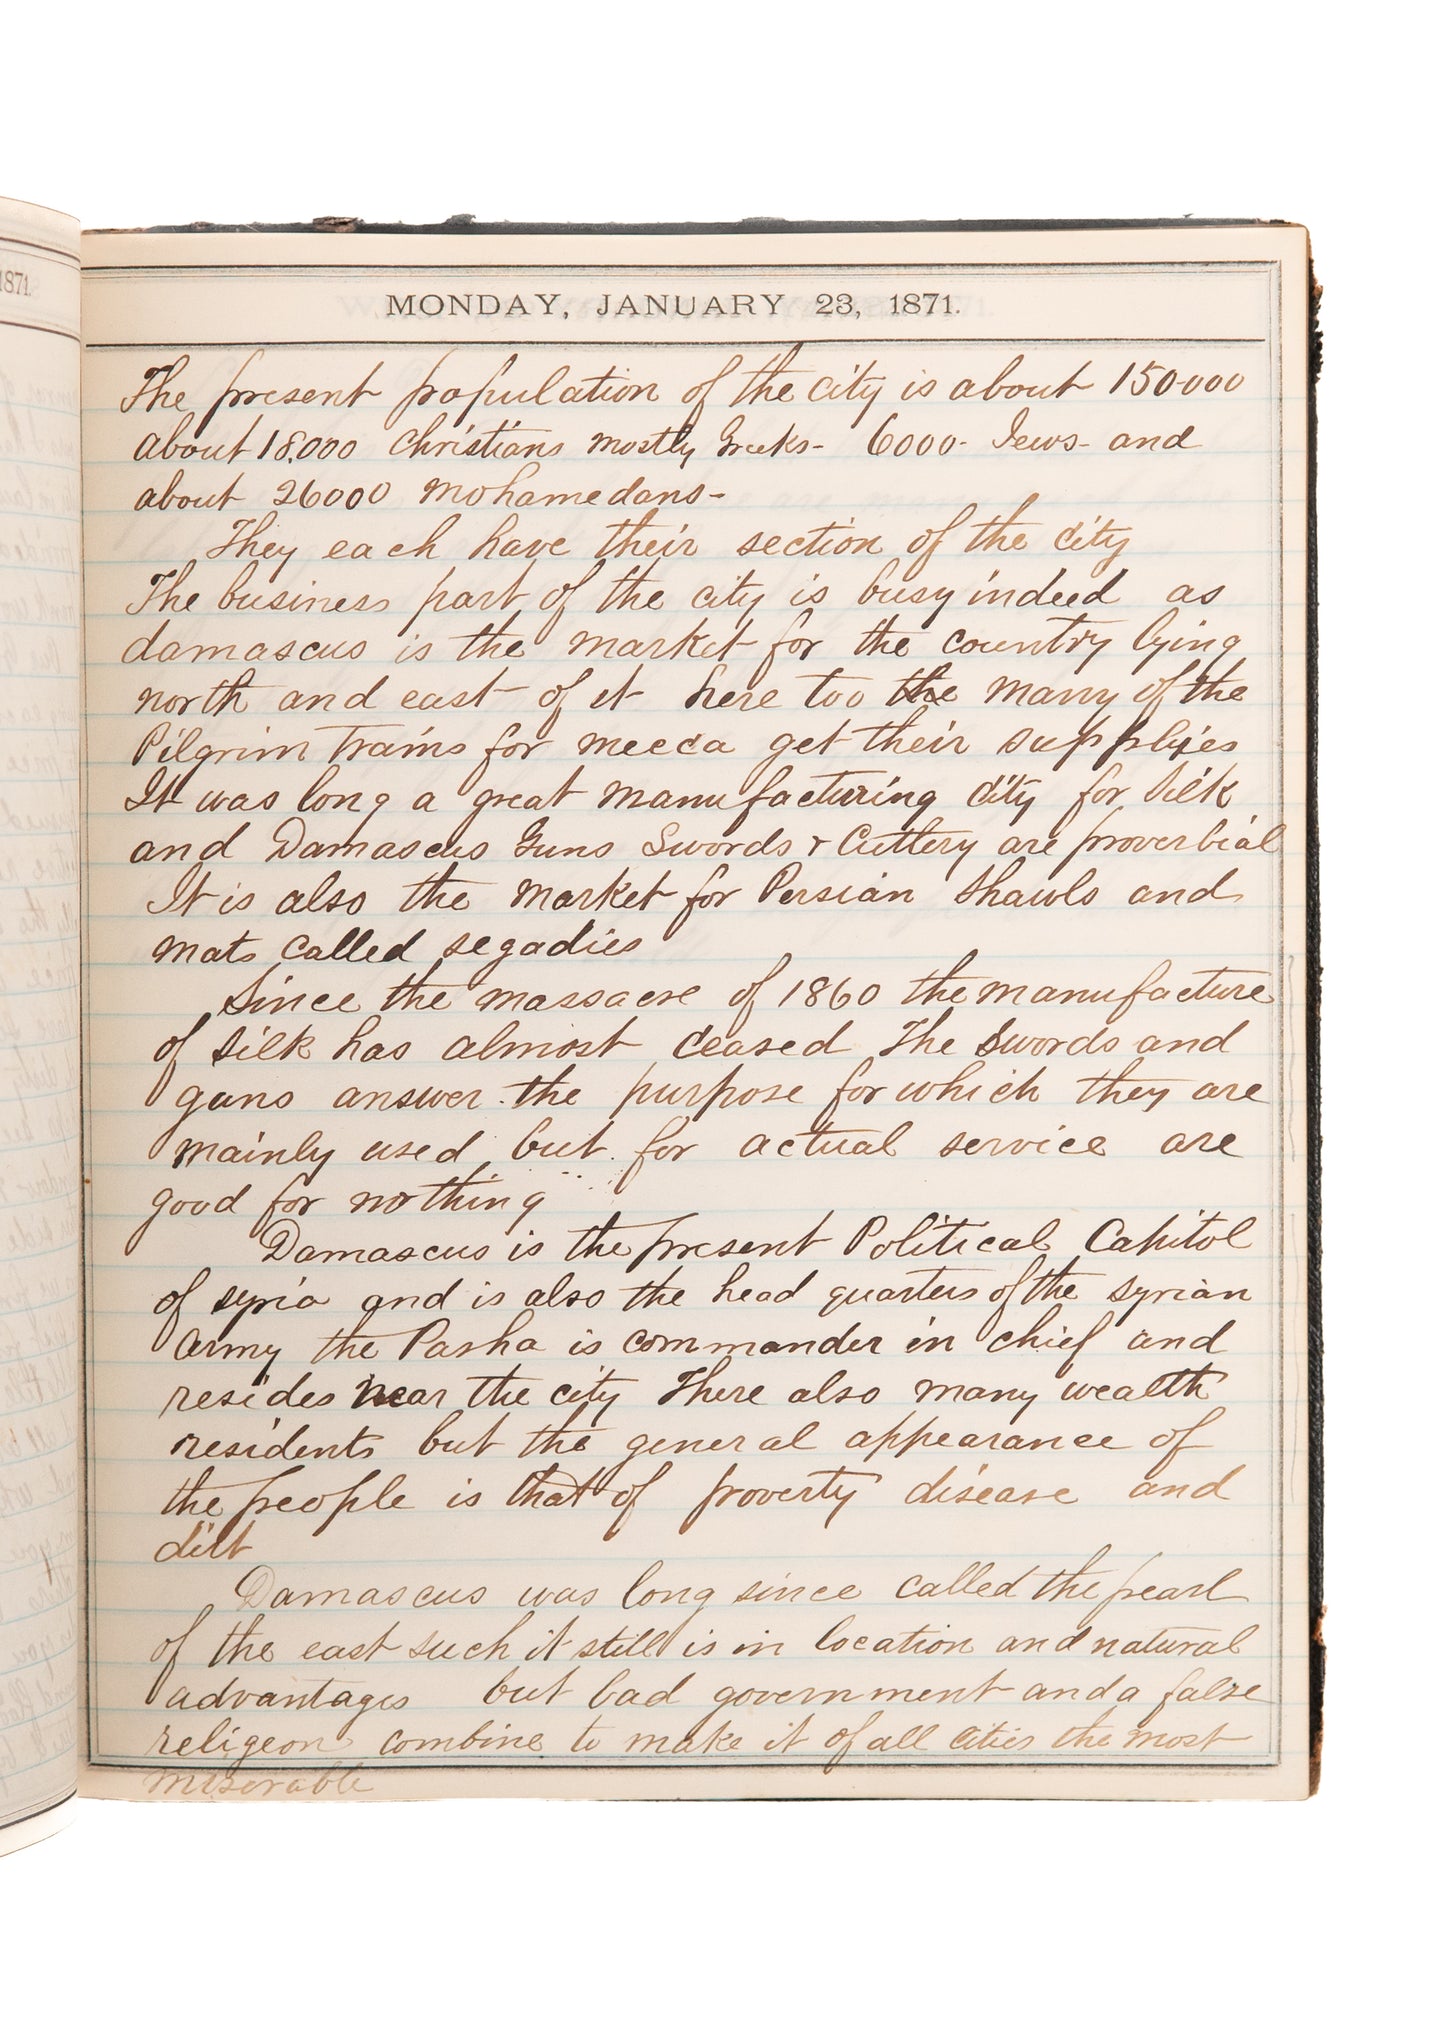 1871.
MONDAY, JANUARY 23, 1871.
The present population of the city is about 150000
about 18,000 Christians mostly Greeks- 6000- Jews- and
about 26000 Mohamedans-
They each have their section of the city
The business part of the city is busy indeed as
damascus is the market for the country lying
north and east of it here too the many of the
Pilgrim Trains for mecca get their supplyes
It was long a great manufacturing city for Silk
and Damascus Guns Swords & Cuttlery are proverbial
It is also the market for Persian Shawls and
mats called segadies
Since the massacre of 1860 the manufacture
of silk has almost ceased The Swords and
guns answer the purpose for which they are
mainly used but for actual service are
good for nothing
Damascus is the present Political Capitol
of syria and is also the head quarters of the syrian
army the Pasha is commander in chief and
resides near the city There also many wealth
residents but the general appearance of
the people is that of proverty disease and
dirt
Damascus was long since called the pearl
of the east such it still is in location and natural
advantages but bad government and a false
religeon combine to make it of all cities the most
miserable